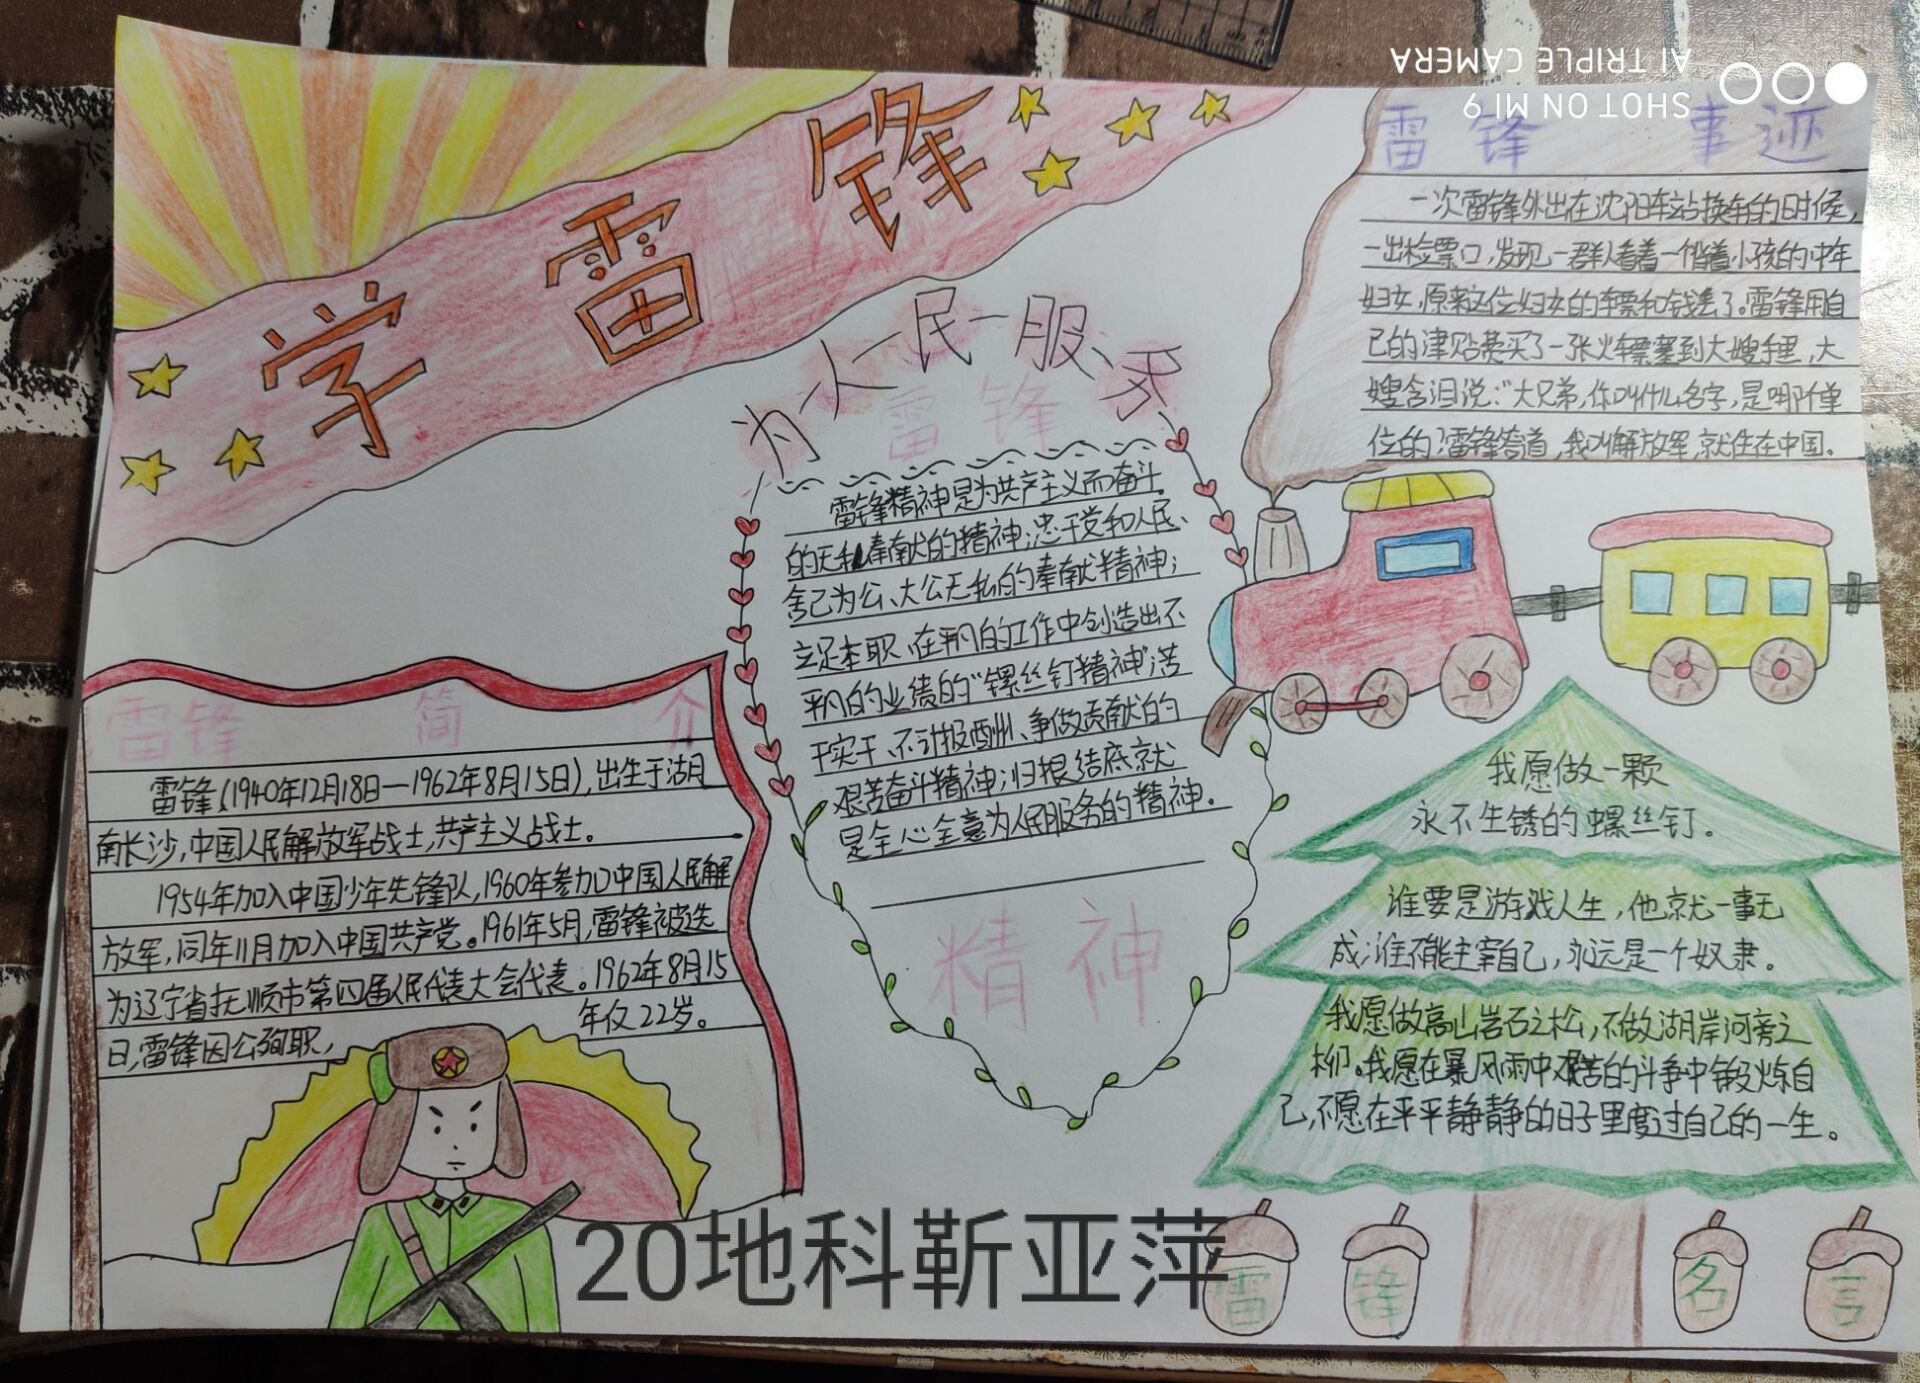 学雷锋
为人民服务
雷锋
雷锋精神是为共产主义而奋斗
的无私奉献的精神;忠于党和人民、
舍己为公、大公无私的奉献精神;
立足本职、在平凡的工作中创造出不
平凡的业绩的“螺丝钉精神”;苦
干实干、不计报酬、争做贡献的
艰苦奋斗精神;归根结底就
是全心全意为人民服务的精神.
精神
雷锋简介
雷锋(1940年12月18日—1962年8月15日),出生于湖
南长沙,中国人民解放军战士,共产主义战士。
1954年加入中国少年先锋队,1960年参加中国人民解
放军,同年11月加入中国共产党。1961年5月,雷锋被选
为辽宁省抚顺市第四届人民代表大会代表。1962年8月15
日,雷锋因公殉职,
年仅22岁。
SHOT ON MI 9
AI TRIPLE CAMERA
雷锋 事迹
一次雷锋外出在沈阳车站换车的时候,
一出检票口,发现一群人看着一个背着小孩的中年
妇女,原来这位妇女的车票和钱丢了。雷锋用自
己的津贴费买了一张火车票塞到大嫂手里,大
嫂含泪说:“大兄弟,你叫什么名字,是哪个单
位的?雷锋答道,我叫解放军,就住在中国.
我愿做一颗
永不生锈的螺丝钉.
谁要是游戏人生,他就一事无
成;谁不能主宰自己,永远是一个奴隶。
我愿做高山岩石之松,不做湖岸河旁之
柳。我愿在暴风雨中艰苦的斗争中锻炼自
己,不愿在平平静静的日子里度过自己的一生。
雷锋名言
20地科靳亚萍